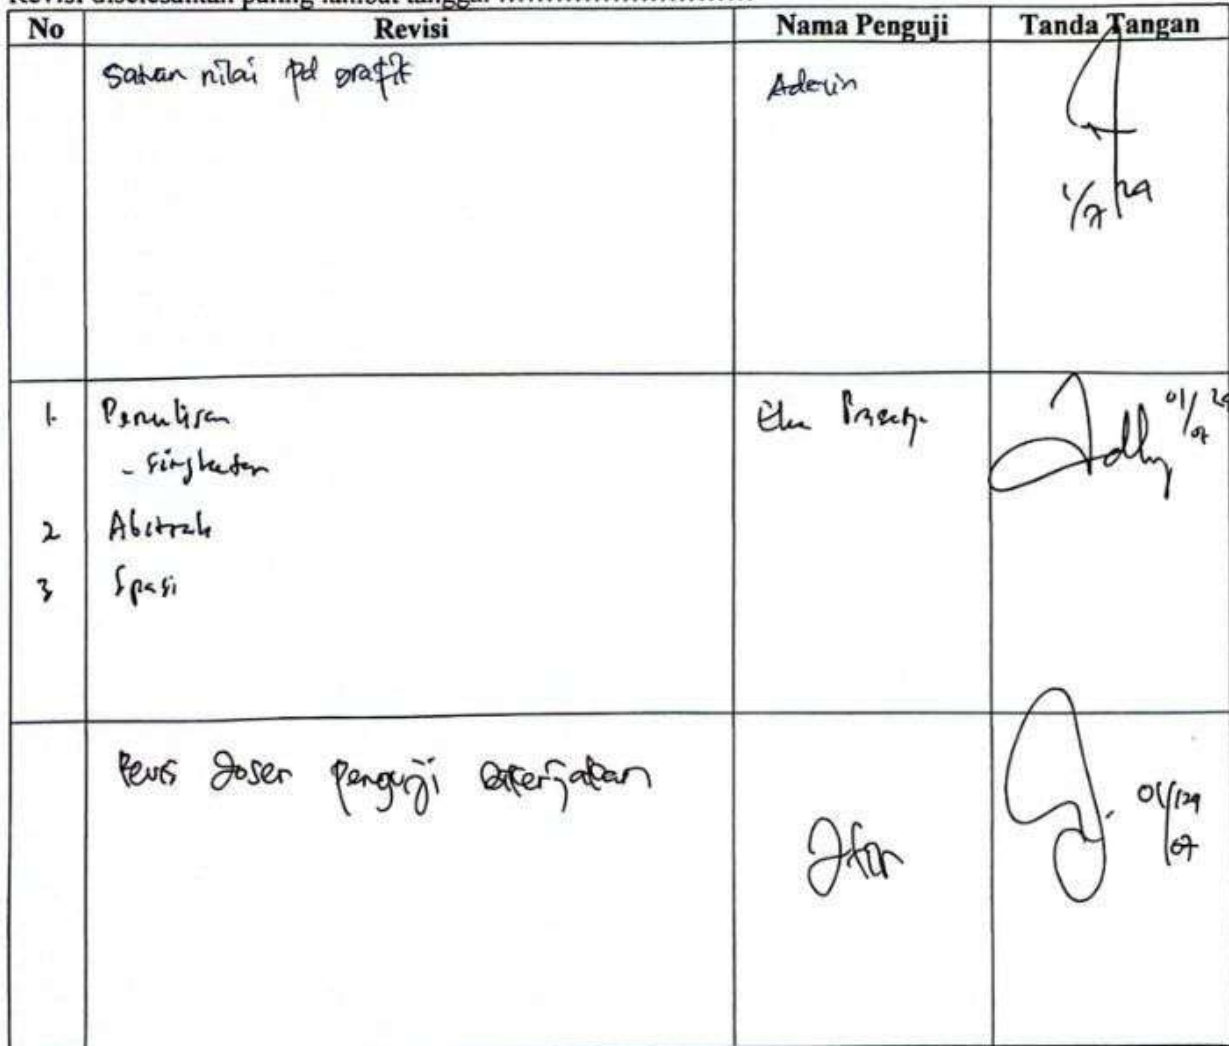 Revisi diselesaikan paling lambat tanggal ..............................
No Revisi Nama Penguji Tanda Tangan
Satuan nilai pd grafik Aderin
1/7/24
1. Penulisan Eka 01/07 24
- Singkatan
2 Abstrak
3 Spasi
Revisi dosen penguji dikerjakan
01/07/24